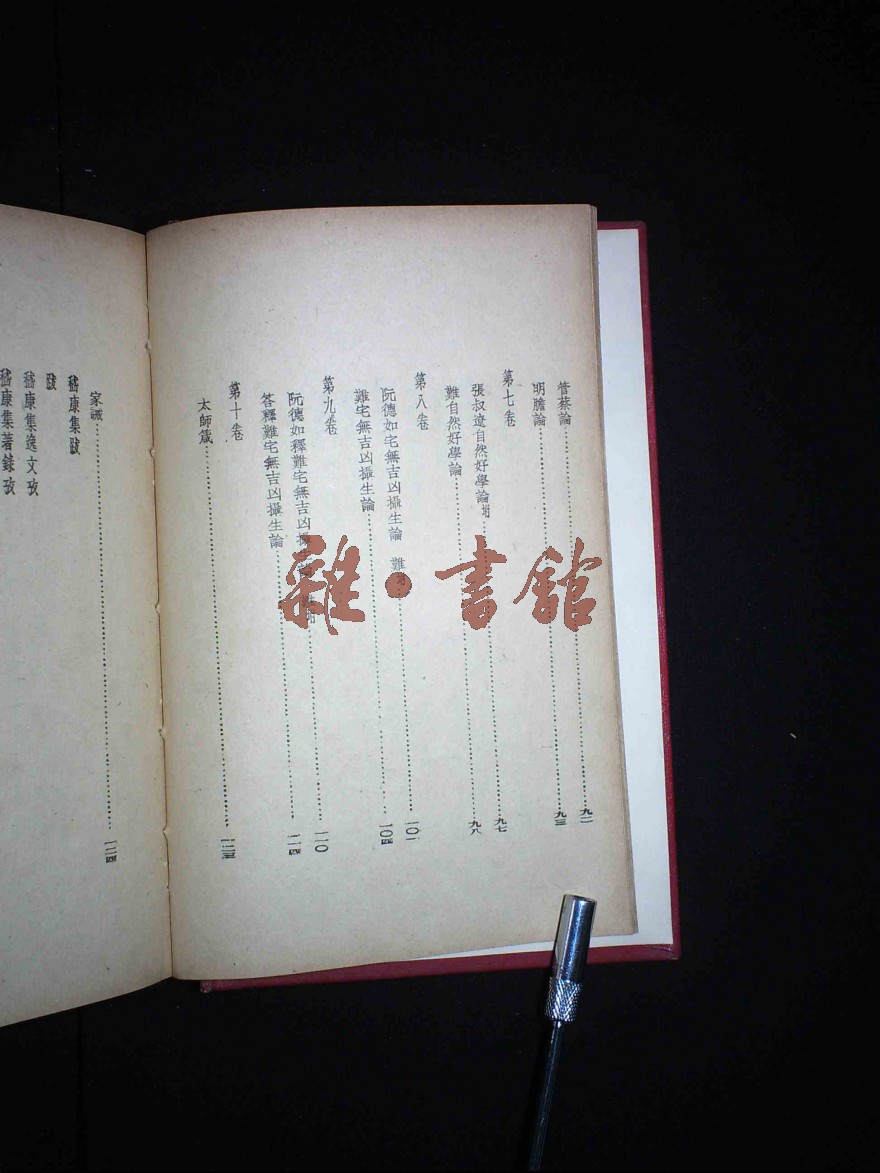 管蔡論……九一
明膽論……九三
第七卷
張叔遼自然好學論附……九七
難自然好學論……九八
第八卷
阮德如宅無吉凶攝生論 難附……一〇一
難宅無吉凶攝生論……一〇四
第九卷
阮德如釋難宅無吉凶攝生論 難附……一一〇
答釋難宅無吉凶攝生論……一一四
第十卷
太師箴……一二三
家誡……一二四
嵇康集跋
跋
嵇康集逸文攷
嵇康集著錄攷
雜·書館